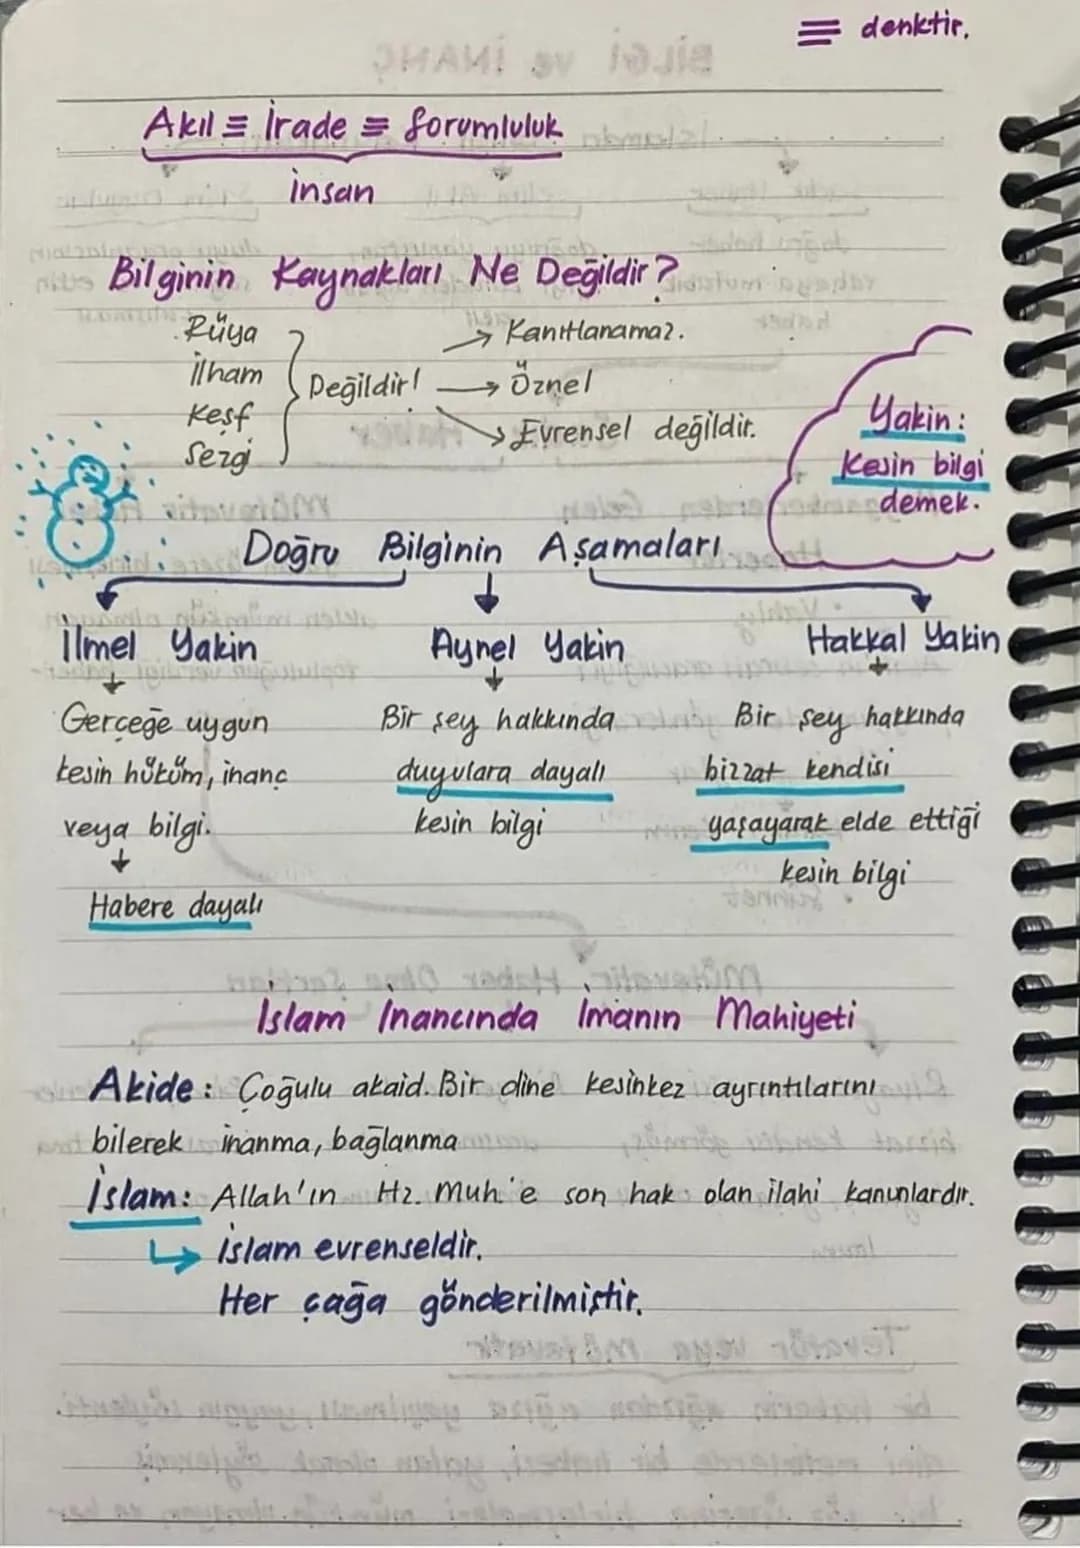 ≡ denktir.
Akıl ≡ İrade ≡ Sorumluluk
insan
Bilginin Kaynakları Ne Değildir?
Rüya
İlham
Keşf
Sezgi
Değildir!
→ Kanıtlanamaz.
→ Öznel
→ Evrensel değildir.
Yakin:
Kesin bilgi
demek.
Doğru Bilginin Aşamaları
İlmel Yakin
Gerçeğe uygun
kesin hüküm, inanç
veya bilgi.
Habere dayalı
Aynel Yakin
Bir şey hakkında
duyulara dayalı
kesin bilgi
Hakkal Yakin
Bir şey hakkında
bizzat kendisi
yaşayarak elde ettiği
kesin bilgi
İslam İnancında İmanın Mahiyeti
Akide: Çoğulu akaid. Bir dine kesinkez ayrıntılarını
bilerek inanma, bağlanma
İslam: Allah'ın Hz. Muh.'e son hak olan ilahi kanunlardır.
↳ İslam evrenseldir.
Her çağa gönderilmiştir.